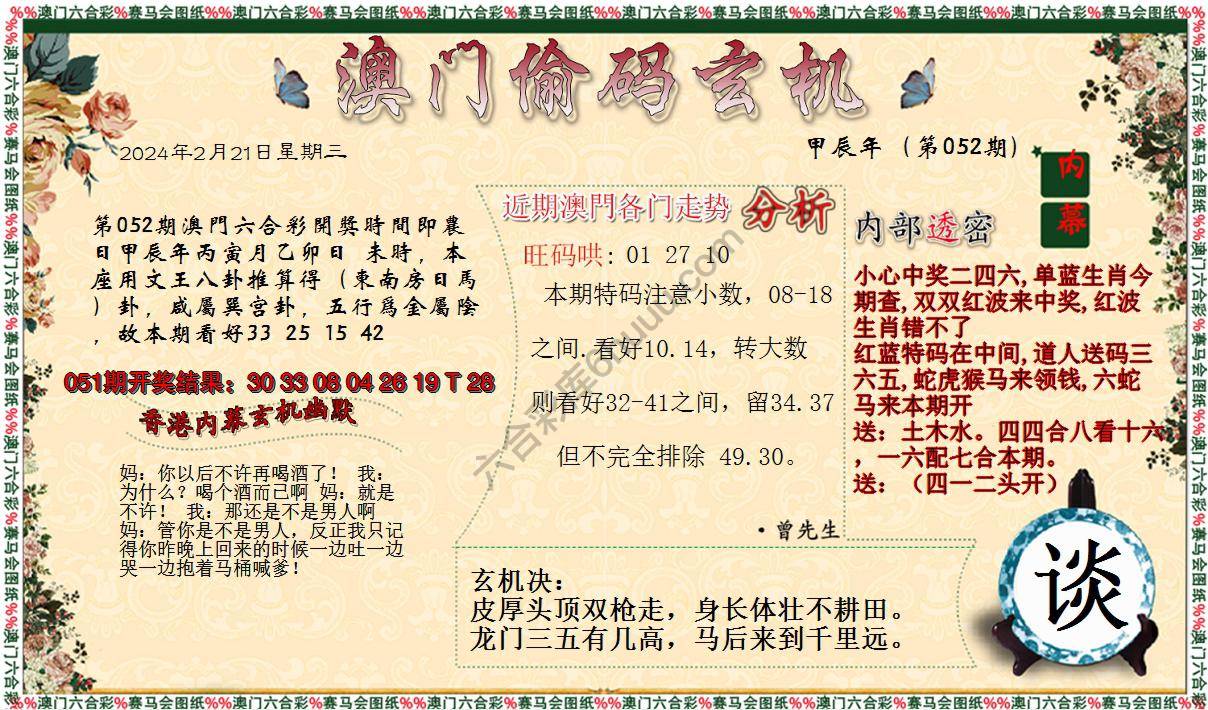 %%澳门六合彩%赛马会图纸%%澳门六合彩%赛马会图纸%%澳门六合彩%赛马会图纸%%澳门六合彩%赛马会图纸%%澳门六合彩%赛马会图纸%%澳门六合彩%赛马会图纸%%
澳门偷码玄机
2024年2月21日星期三
甲辰年（第052期）
内幕
第052期澳門六合彩開獎時間即農
日甲辰年丙寅月乙卯日 未時，本
座用文王八卦推算得（東南房日馬
）卦，咸屬巽宫卦，五行爲金屬陰
，故本期看好33 25 15 42
051期开奖结果：30 33 08 04 26 19 T 28
香港内幕玄机幽默
妈：你以后不许再喝酒了！ 我：
为什么？喝个酒而已啊 妈：就是
不许！ 我：那还是不是男人啊
妈：管你是不是男人，反正我只记
得你昨晚上回来的时候一边吐一边
哭一边抱着马桶喊爹！
近期澳門各门走势 分析
旺码哄: 01 27 10
本期特码注意小数，08-18
之间.看好10.14，转大数
则看好32-41之间，留34.37
但不完全排除 49.30。
·曾先生
内部透密
小心中奖二四六,单蓝生肖今
期查,双双红波来中奖,红波
生肖错不了
红蓝特码在中间,道人送码三
六五,蛇虎猴马来领钱,六蛇
马来本期开
送：土木水。四四合八看十六
，一六配七合本期。
送：（四一二头开）
玄机决：
皮厚头顶双枪走，身长体壮不耕田。
龙门三五有几高，马后来到千里远。
谈
%%澳门六合彩%赛马会图纸%%澳门六合彩%赛马会图纸%%澳门六合彩%赛马会图纸%%澳门六合彩%赛马会图纸%%澳门六合彩%赛马会图纸%%澳门六合彩%赛马会图纸%%